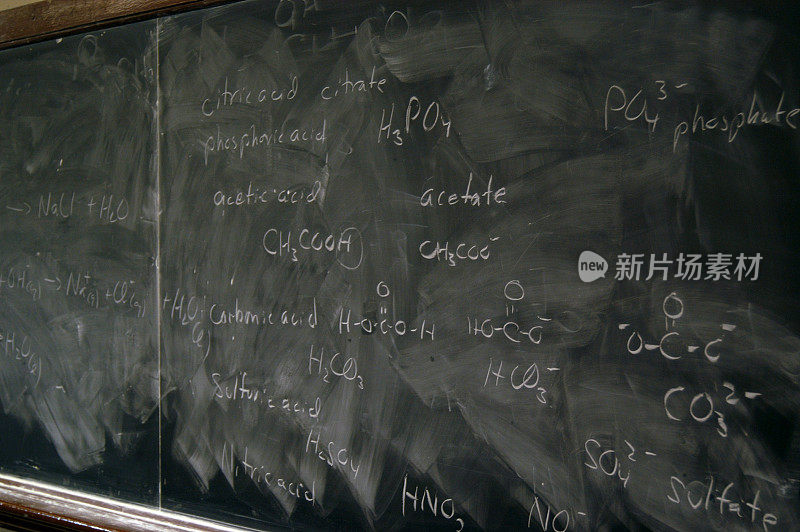 OH
citric acid citrate
phosphoric acid H₃PO₄ PO₄³⁻ phosphate
acetic acid acetate
CH₃COOH CH₃COO⁻
→ NaCl + H₂O
→ Na⁺(aq) + Cl⁻(aq) + H₂O(l)
H₂O(l)
Carbonic acid
O O O
H-O-C-O-H HO-C-O⁻ ⁻O-C-O⁻
H₂CO₃ HCO₃⁻ CO₃²⁻
Sulfuric acid
H₂SO₄ SO₄²⁻ Sulfate
Nitric acid HNO₃ NO⁻
new 新图片素材